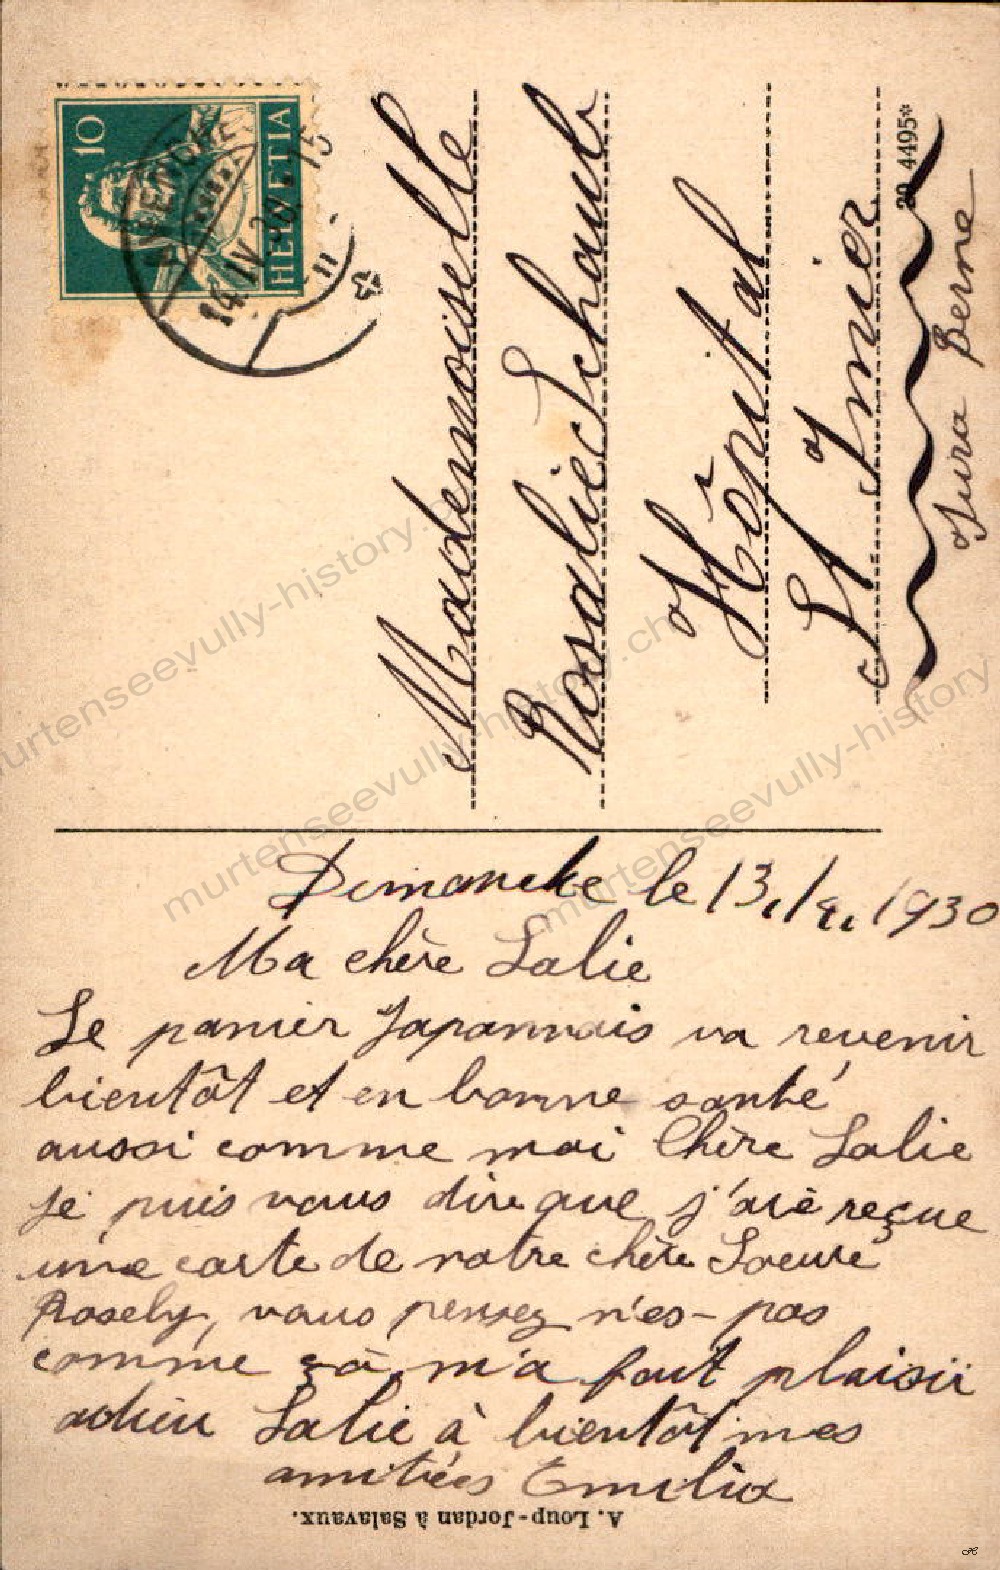 10
HELVETIA
AVENCHES
14.IV.30. 15
Mademoiselle
Rosalie Schaub
Hôpital
St Imier
Jura Berne
20 4495*
Dimanche le 13./4. 1930
Ma chère Lalie
Le panier Japannais va revenir
bientôt et en bonne santé
aussi comme moi Chère Lalie
Je puis vous dire que j'ai reçue
une carte de votre chère Soeure
Rosely, vous pensez n'es-pas
comme ça m'a fait plaisir
adieu Lalie à bientôt mes
amitiées Emilia
A. Loup-Jordan à Salavaux.
murtenseevully-history.ch
murtenseevully-history.ch
murtenseevully-history